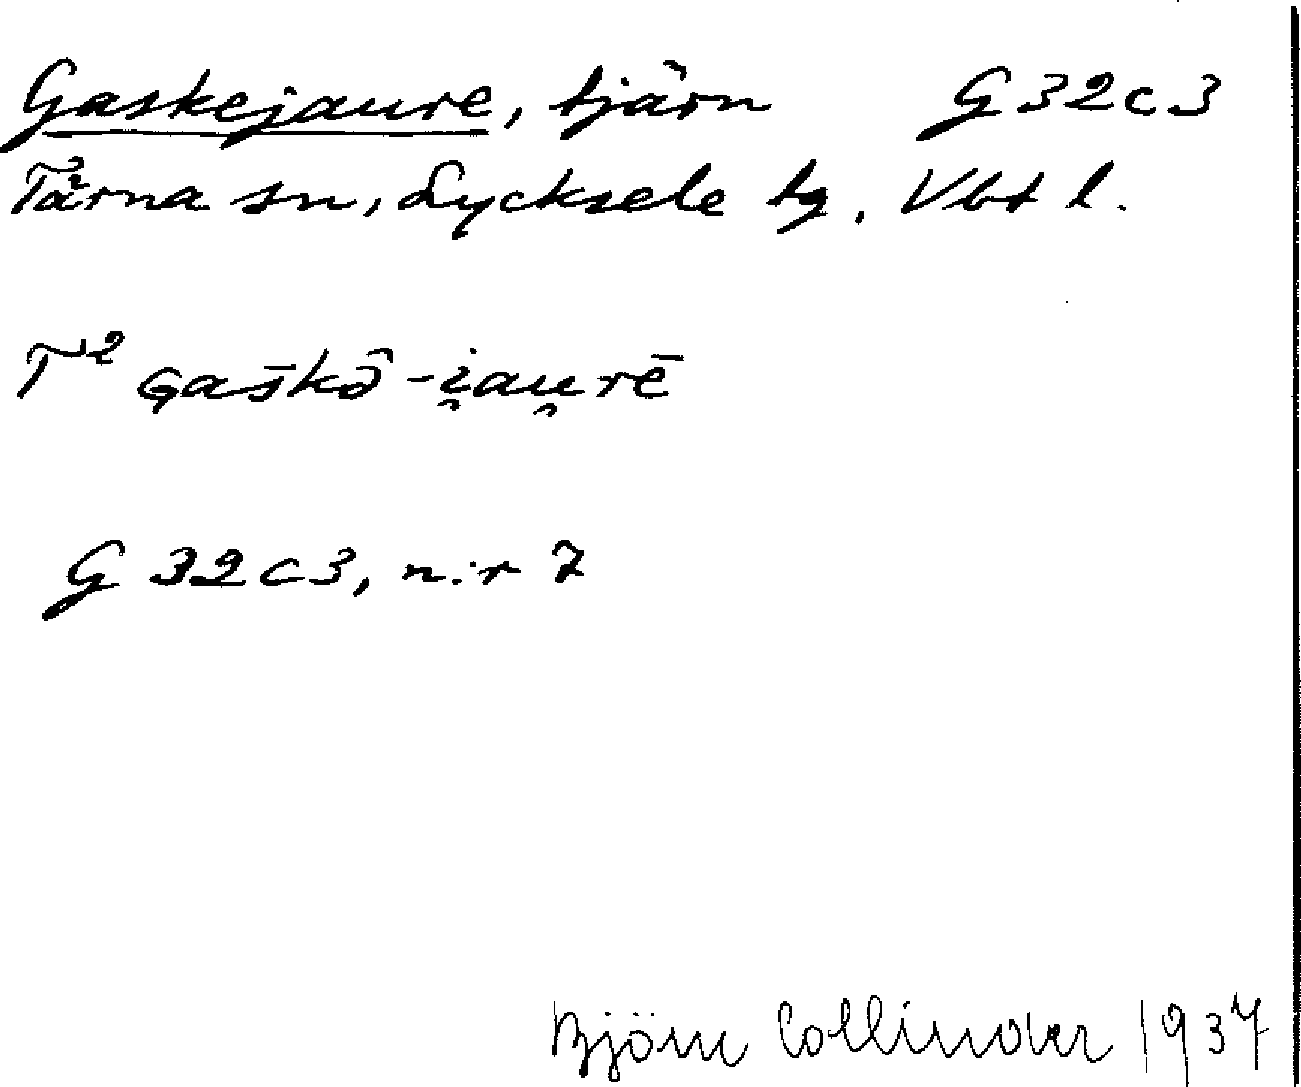 Gaskejaure, tjärn G32c3
Tärna sn, Lycksele tg. Vbt l.
T² Gas̄kə̑-i̯au̯rē
G 32c3, n:r 7
Björn Collinder 1937